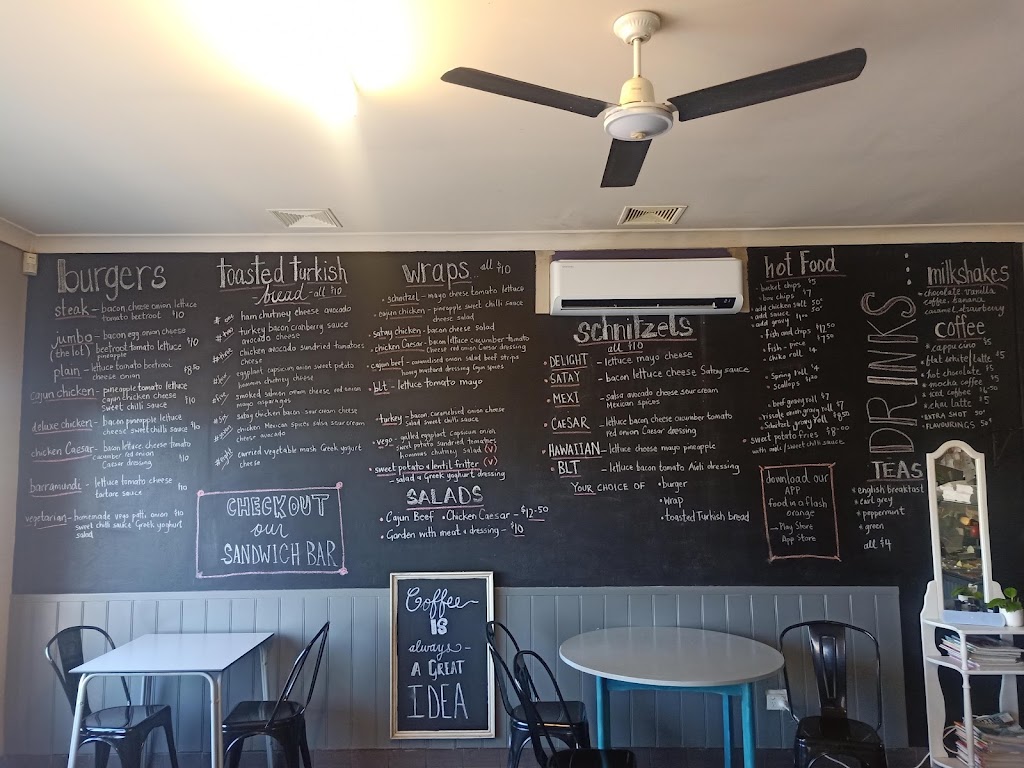 burgers
steak - bacon cheese onion lettuce
tomato beetroot $10
jumbo - bacon egg onion cheese
(the lot) beetroot tomato lettuce $10
pineapple
plain - lettuce tomato beetroot
cheese onion $8.50
cajun chicken - pineapple tomato lettuce
cajun chicken cheese
sweet chilli sauce $10
deluxe chicken - bacon pineapple lettuce
cheese sweet chilli sauce $10
chicken Caesar - bacon lettuce cheese tomato
cucumber red onion
Caesar dressing $10
barramundi - lettuce tomato cheese
tartare sauce $10
vegetarian - homemade vege patti, onion $10
sweet chilli sauce Greek yoghurt
salad
toasted turkish
bread - all $10
ham chutney cheese avocado
turkey bacon cranberry sauce
avocado cheese
chicken avocado sundried tomatoes
cheese
eggplant capsicum onion sweet potato
hommus chutney cheese
smoked salmon cream cheese red onion
mayo asparagus
satay chicken bacon sour cream cheese
chicken Mexican spices salsa sour cream
cheese avocado
curried vegetable mash Greek yogurt
cheese
CHECKOUT
our
SANDWICH BAR
wraps all $10
schnitzel - mayo cheese tomato lettuce
cajun chicken - pineapple sweet chilli sauce
cheese salad
satay chicken - bacon cheese salad
chicken Caesar - bacon lettuce cucumber tomato
cheese red onion Caesar dressing
cajun beef - caramelised onion salad beef strips
honey mustard dressing
blt - lettuce tomato mayo
turkey - bacon caramelised onion cheese
salad sweet chilli sauce
vego - grilled eggplant capsicum onion
sweet potato sundried tomatoes
hommus chutney salad (V)
sweet potato & lentil fritter (V)
- salad & Greek yoghurt dressing
SALADS
• Cajun Beef • Chicken Caesar - $12.50
• Garden with meat & dressing - $10
schnitzels
all $10
DELIGHT - lettuce mayo cheese
• SATAY - bacon lettuce cheese Satay sauce
• MEXI - salsa avocado cheese sour cream
Mexican spices
• CAESAR - lettuce bacon cheese cucumber tomato
red onion Caesar dressing
• HAWAIIAN - lettuce cheese mayo pineapple
• BLT - lettuce bacon tomato Aioli dressing
YOUR CHOICE OF • burger
• wrap
• toasted Turkish bread
hot Food
• bucket chips $5
• box chips $7
• add chicken salt 50¢
• add sauce
• add gravy
• fish and chips $12.50
• fish - piece $7.50
• chiko roll $4
• Spring roll $4
• Scallops
• beef gravy roll $7
• rissole onion gravy roll $7
• Schnitzel gravy roll $8.50
• sweet potato fries $8.00
with aioli / sweet chilli sauce
download our
APP
food in a flash
orange
- Play Store
App Store
DRINKS
milkshakes
• chocolate vanilla
coffee, banana
caramel & strawberry
coffee
• cappucino $5
• flat white/latte $5
• hot chocolate $5
• mocha coffee
• iced coffee
• chai latte $5
EXTRA SHOT 50¢
• FLAVOURINGS 50¢
TEAS
• english breakfast
• earl grey
• peppermint
• green
all $4
Coffee
IS
always -
A GREAT
IDEA